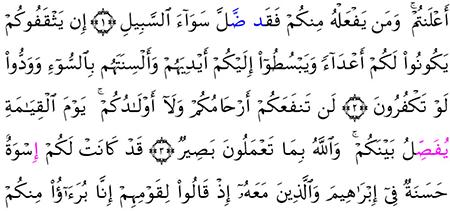 أَعْلَنتُمْ ۚ وَمَن يَفْعَلْهُ مِنكُمْ فَقَد ضَّلَّ سَوَآءَ ٱلسَّبِيلِ ﴿١﴾ إِن يَثْقَفُوكُمْ
يَكُونُوا۟ لَكُمْ أَعْدَآءً وَيَبْسُطُوٓا۟ إِلَيْكُمْ أَيْدِيَهُمْ وَأَلْسِنَتَهُم بِٱلسُّوٓءِ وَوَدُّوا۟
لَوْ تَكْفُرُونَ ﴿٢﴾ لَن تَنفَعَكُمْ أَرْحَامُكُمْ وَلَآ أَوْلَـٰدُكُمْ ۚ يَوْمَ ٱلْقِيَـٰمَةِ
يُفَصِّلُ بَيْنَكُمْ ۚ وَٱللَّهُ بِمَا تَعْمَلُونَ بَصِيرٌ ﴿٣﴾ قَدْ كَانَتْ لَكُمْ إِسْوَةٌ
حَسَنَةٌ فِىٓ إِبْرَٰهِيمَ وَٱلَّذِينَ مَعَهُۥٓ إِذْ قَالُوا۟ لِقَوْمِهِمْ إِنَّا بُرَءَٰٓؤُا۟ مِنكُمْ